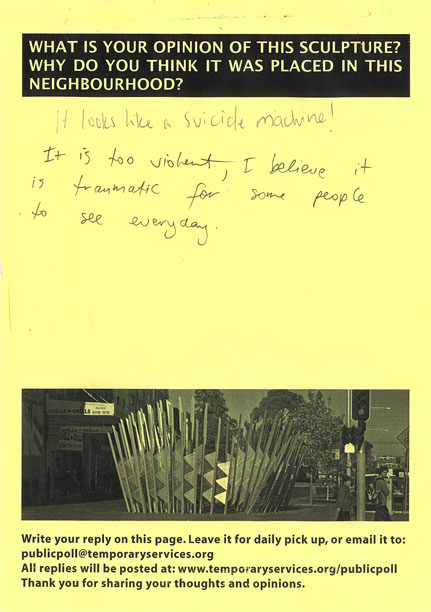 WHAT IS YOUR OPINION OF THIS SCULPTURE?
WHY DO YOU THINK IT WAS PLACED IN THIS
NEIGHBOURHOOD?
it looks like a suicide machine!
It is too violent, I believe it
is traumatic for some people
to see everyday.
Write your reply on this page. Leave it for daily pick up, or email it to:
publicpoll@temporaryservices.org
All replies will be posted at: www.temporaryservices.org/publicpoll
Thank you for sharing your thoughts and opinions.